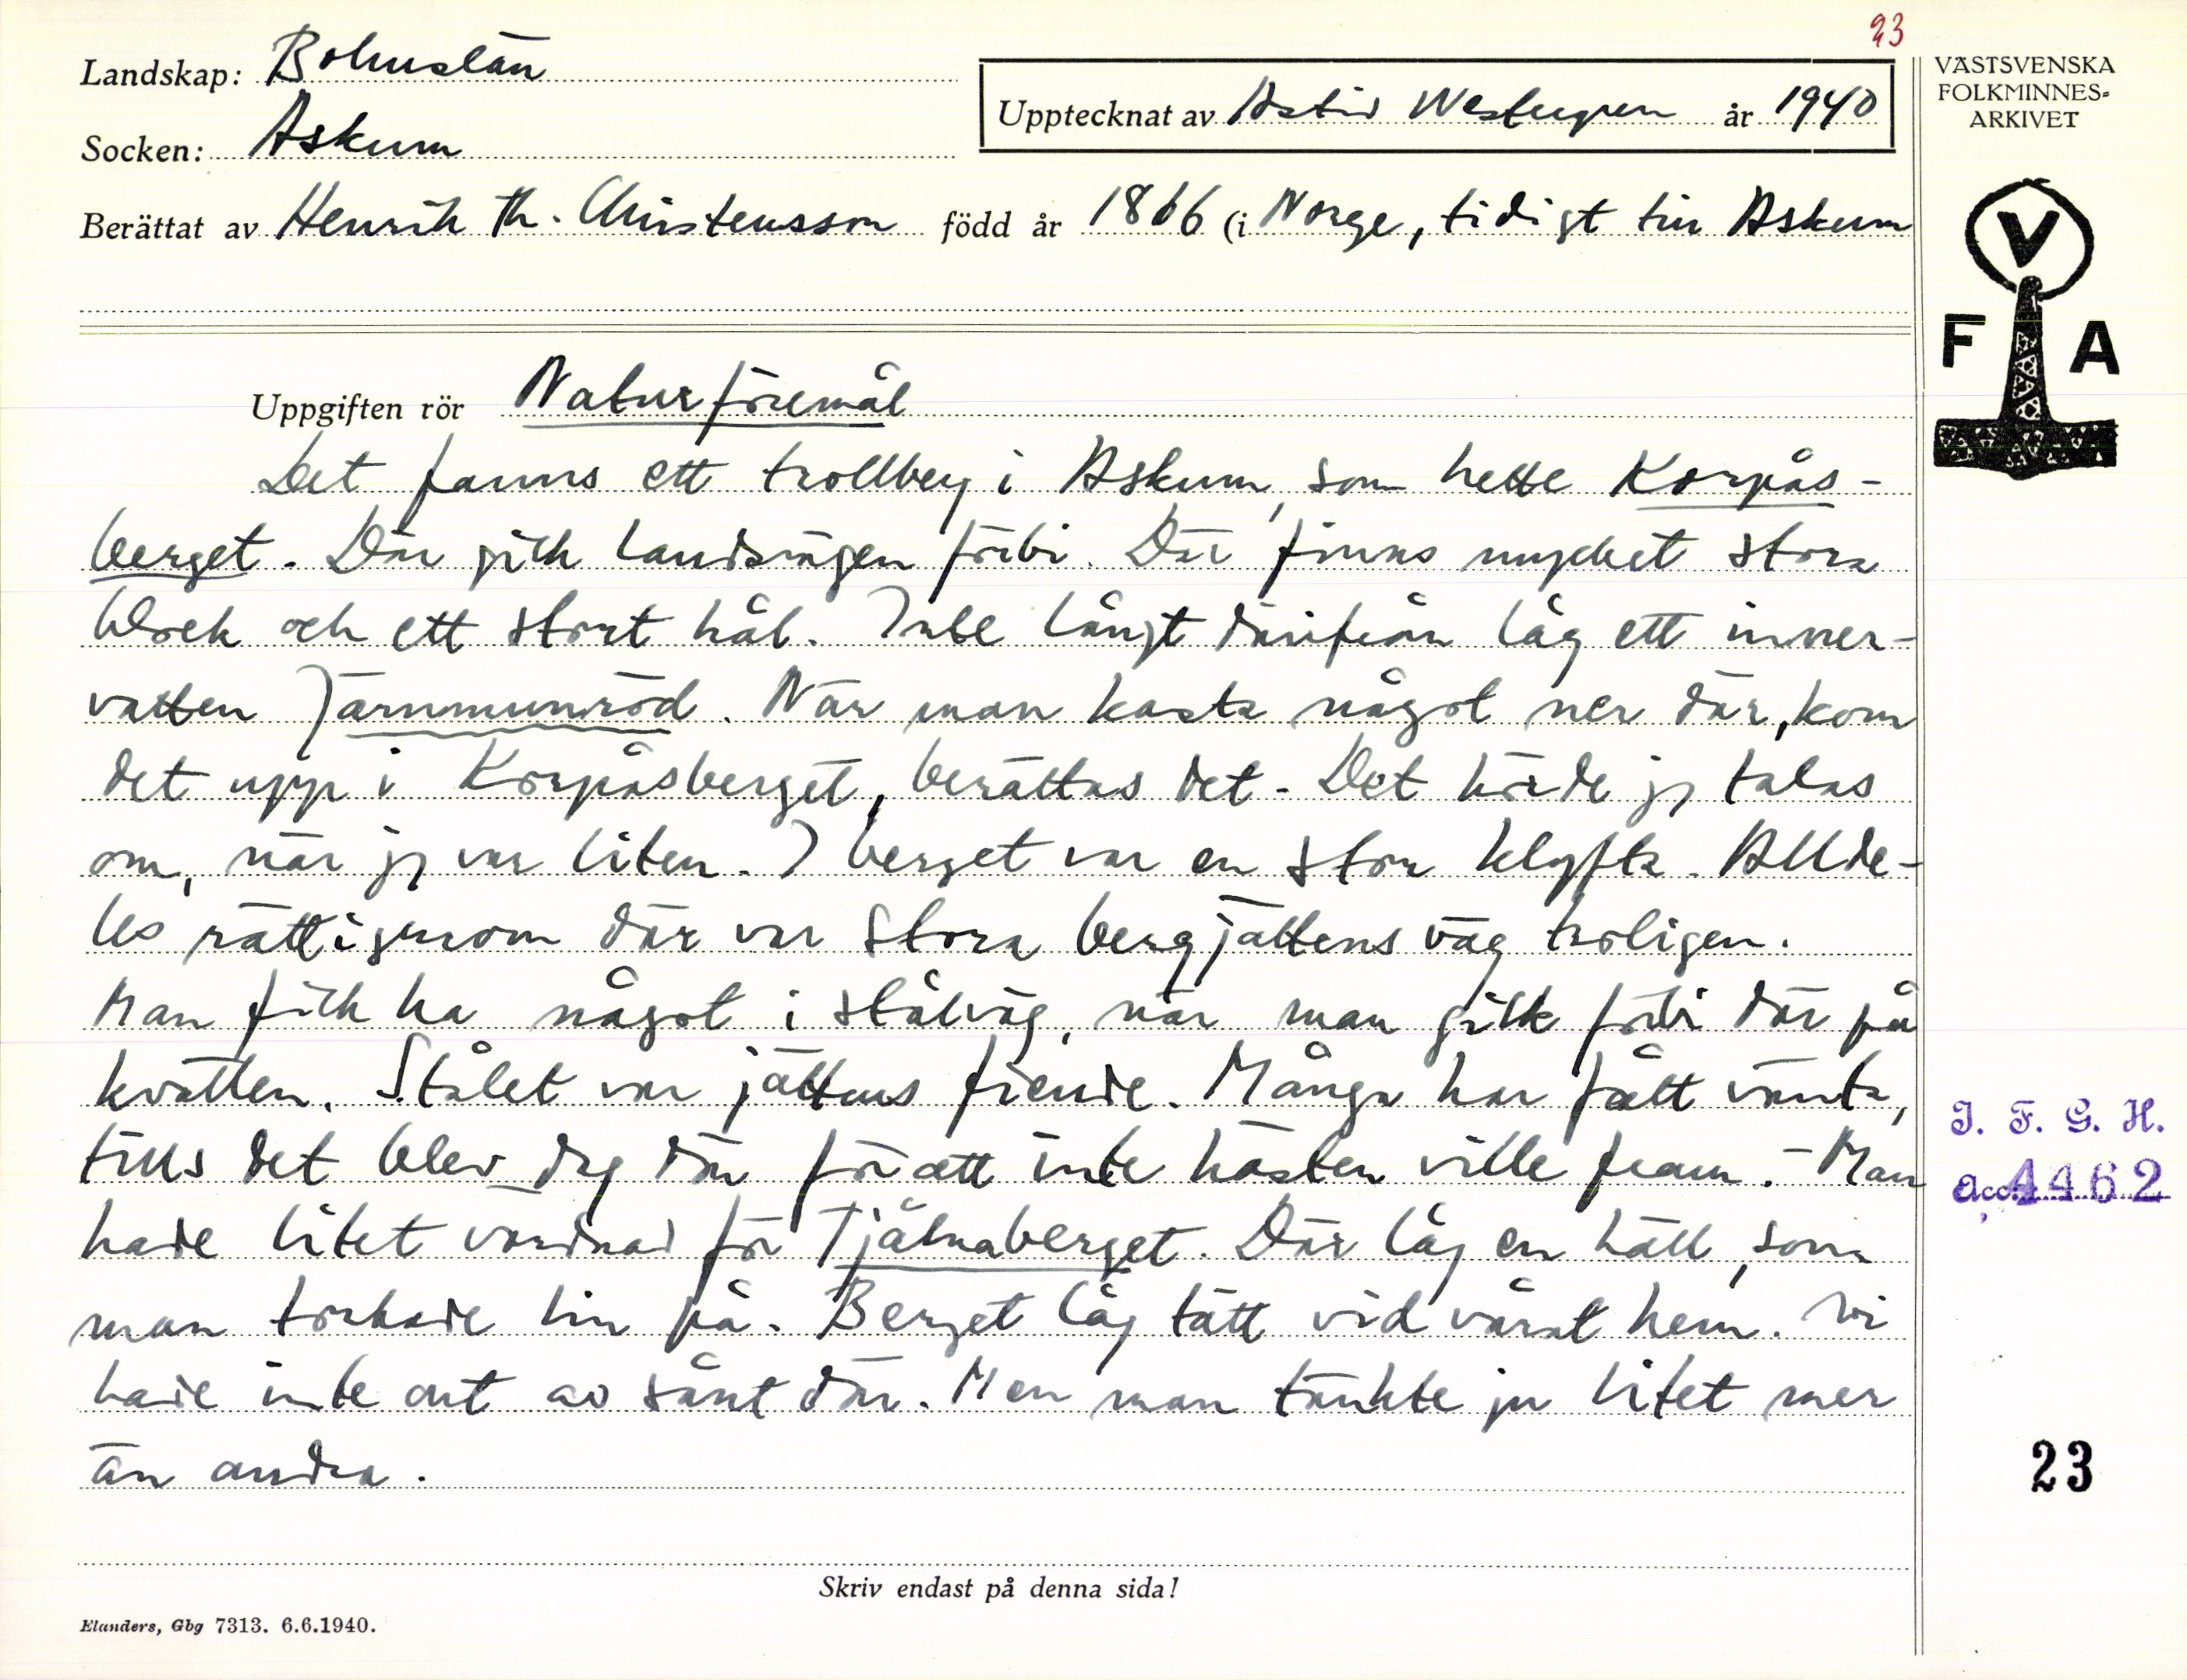 23
Landskap: Bohuslän
Upptecknat av Astrid Westergren år 1940
Socken: Askum
Berättat av Henrik Th. Christensson född år 1866 (i Norge, tidigt till Askum
VÄSTSVENSKA
FOLKMINNES-
ARKIVET
V
F A
Uppgiften rör Naturföremål
Det fanns ett trollberg i Askum, som hette Korpås-
berget. Där gick landsvägen förbi. Där finns mycket stora
block och ett stort hål. Inte långt därifrån låg ett inner-
vatten Järnmunröd. När man kasta något ner där, kom
det upp i Korpåsberget, berättas det. Det hörde jg talas
om, när jg var liten. I berget var en stor klyfta. Allde-
les rätt igenom där var stora bergjättens väg troligen.
Man fick ha något i stålväg, när man gick förbi där på
kvällen. Stålet var jättens fiende. Många har fått vänta,
tills det blev dag där för att inte hästen ville fram. - Man
hade litet vördnad för Tjälnaberget. Där låg en häll, som
man torkade lin på. Berget låg tätt vid vårat hem. Vi
hade inte ont av sånt där. Men man tänkte ju litet mer
än andra.
I. F. G. H.
Acc. 4462
23
Skriv endast på denna sida!
Elanders, Gbg 7313. 6.6.1940.